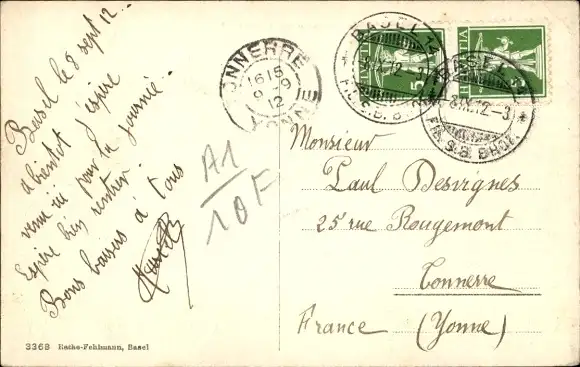 Basel le 8 sept 12
a bientot j'espère
venu ici pour la journée
Espère bien rentrer
Bons baisers à tous
TONNERRE
1615
9-9
12
YONNE
BASEL 12
8.IX.12-3
FIL. S.B. BHOF
BASEL 12
8.IX.12-3
FIL. S.B. BHOF
5
A1
10F
Monsieur
Paul Desvignes
25 rue Rougemont
Tonnerre
France (Yonne)
3368 Rathe-Fehlmann, Basel